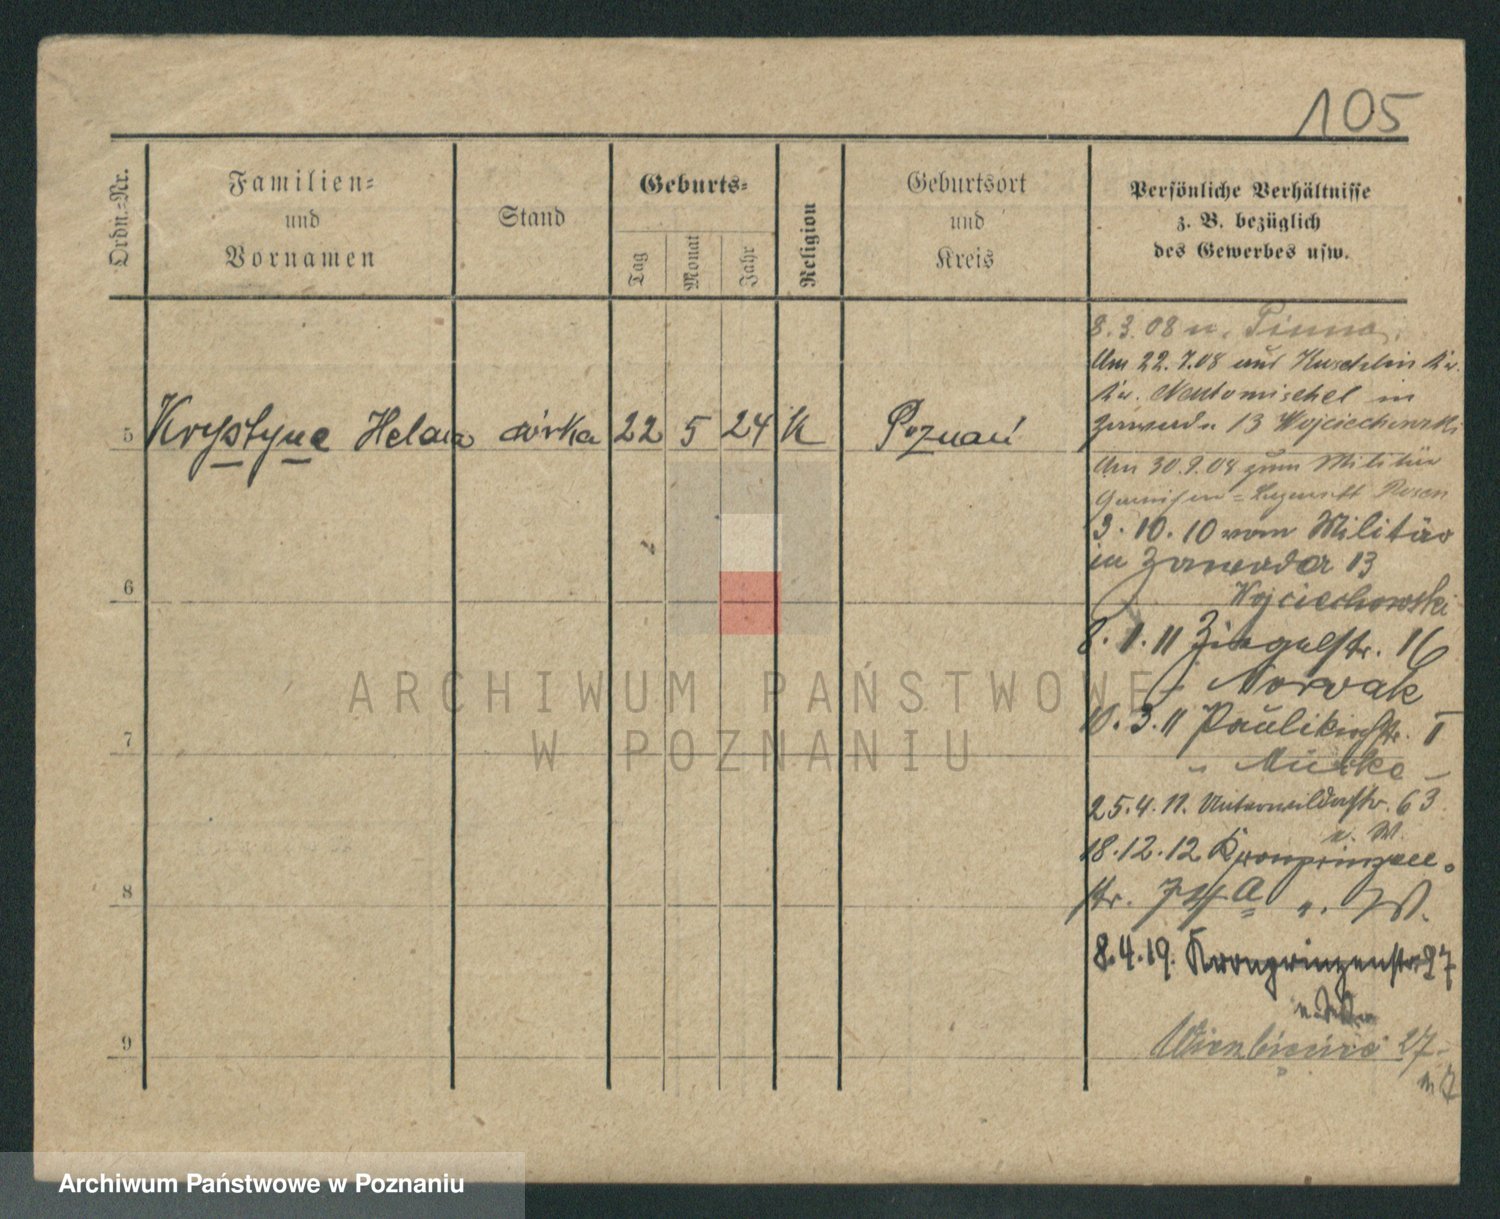 105
Ordn.-Nr.
Familien-
und
Vornamen
Stand
Geburts-
Tag
Monat
Jahr
Religion
Geburtsort
und
Kreis
Persönliche Verhältnisse
z. B. bezüglich
des Gewerbes usw.
5 Krystyne Helena córka 22 5 24 K Poznań
6
7
8
9
8.3.08 n. Pinne
Am 22.7.08 aus Kuschlin
Kr. Neutomischel in
Zawade 13 Wojciechowski
Am 30.9.08 zum Militär
Posen
3.10.10 vom Militär
in Zawade 13
Wojciechowski
8.1.11 Ziegelstr. 16
Nowak
10.3.11 Paulikirchstr.
25.4.11. Unterwildastr. 63
18.12.12 Kronprinzen-
str. a
8.4.19. Kronprinzenstr 27
27
ARCHIWUM PAŃSTWOWE
W POZNANIU
Archiwum Państwowe w Poznaniu